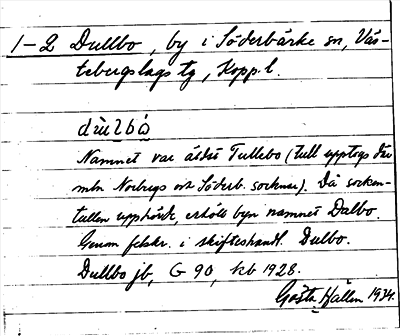 1–2 Dullbo, by i Söderbärke sn, Väs-
terbergslags tg, Kopp. l.
dùlbò
Namnet var äldst Tullebo (tull upptogs där
mln Norbergs och Söderb. socknar). Då socken-
tullen upphörde, erhöll byn namnet Dalbo.
Genom felskr. i skifteshandl. Dulbo.
Dullbo jb, G 90, kb 1928.
Gösta Hallén 1934.